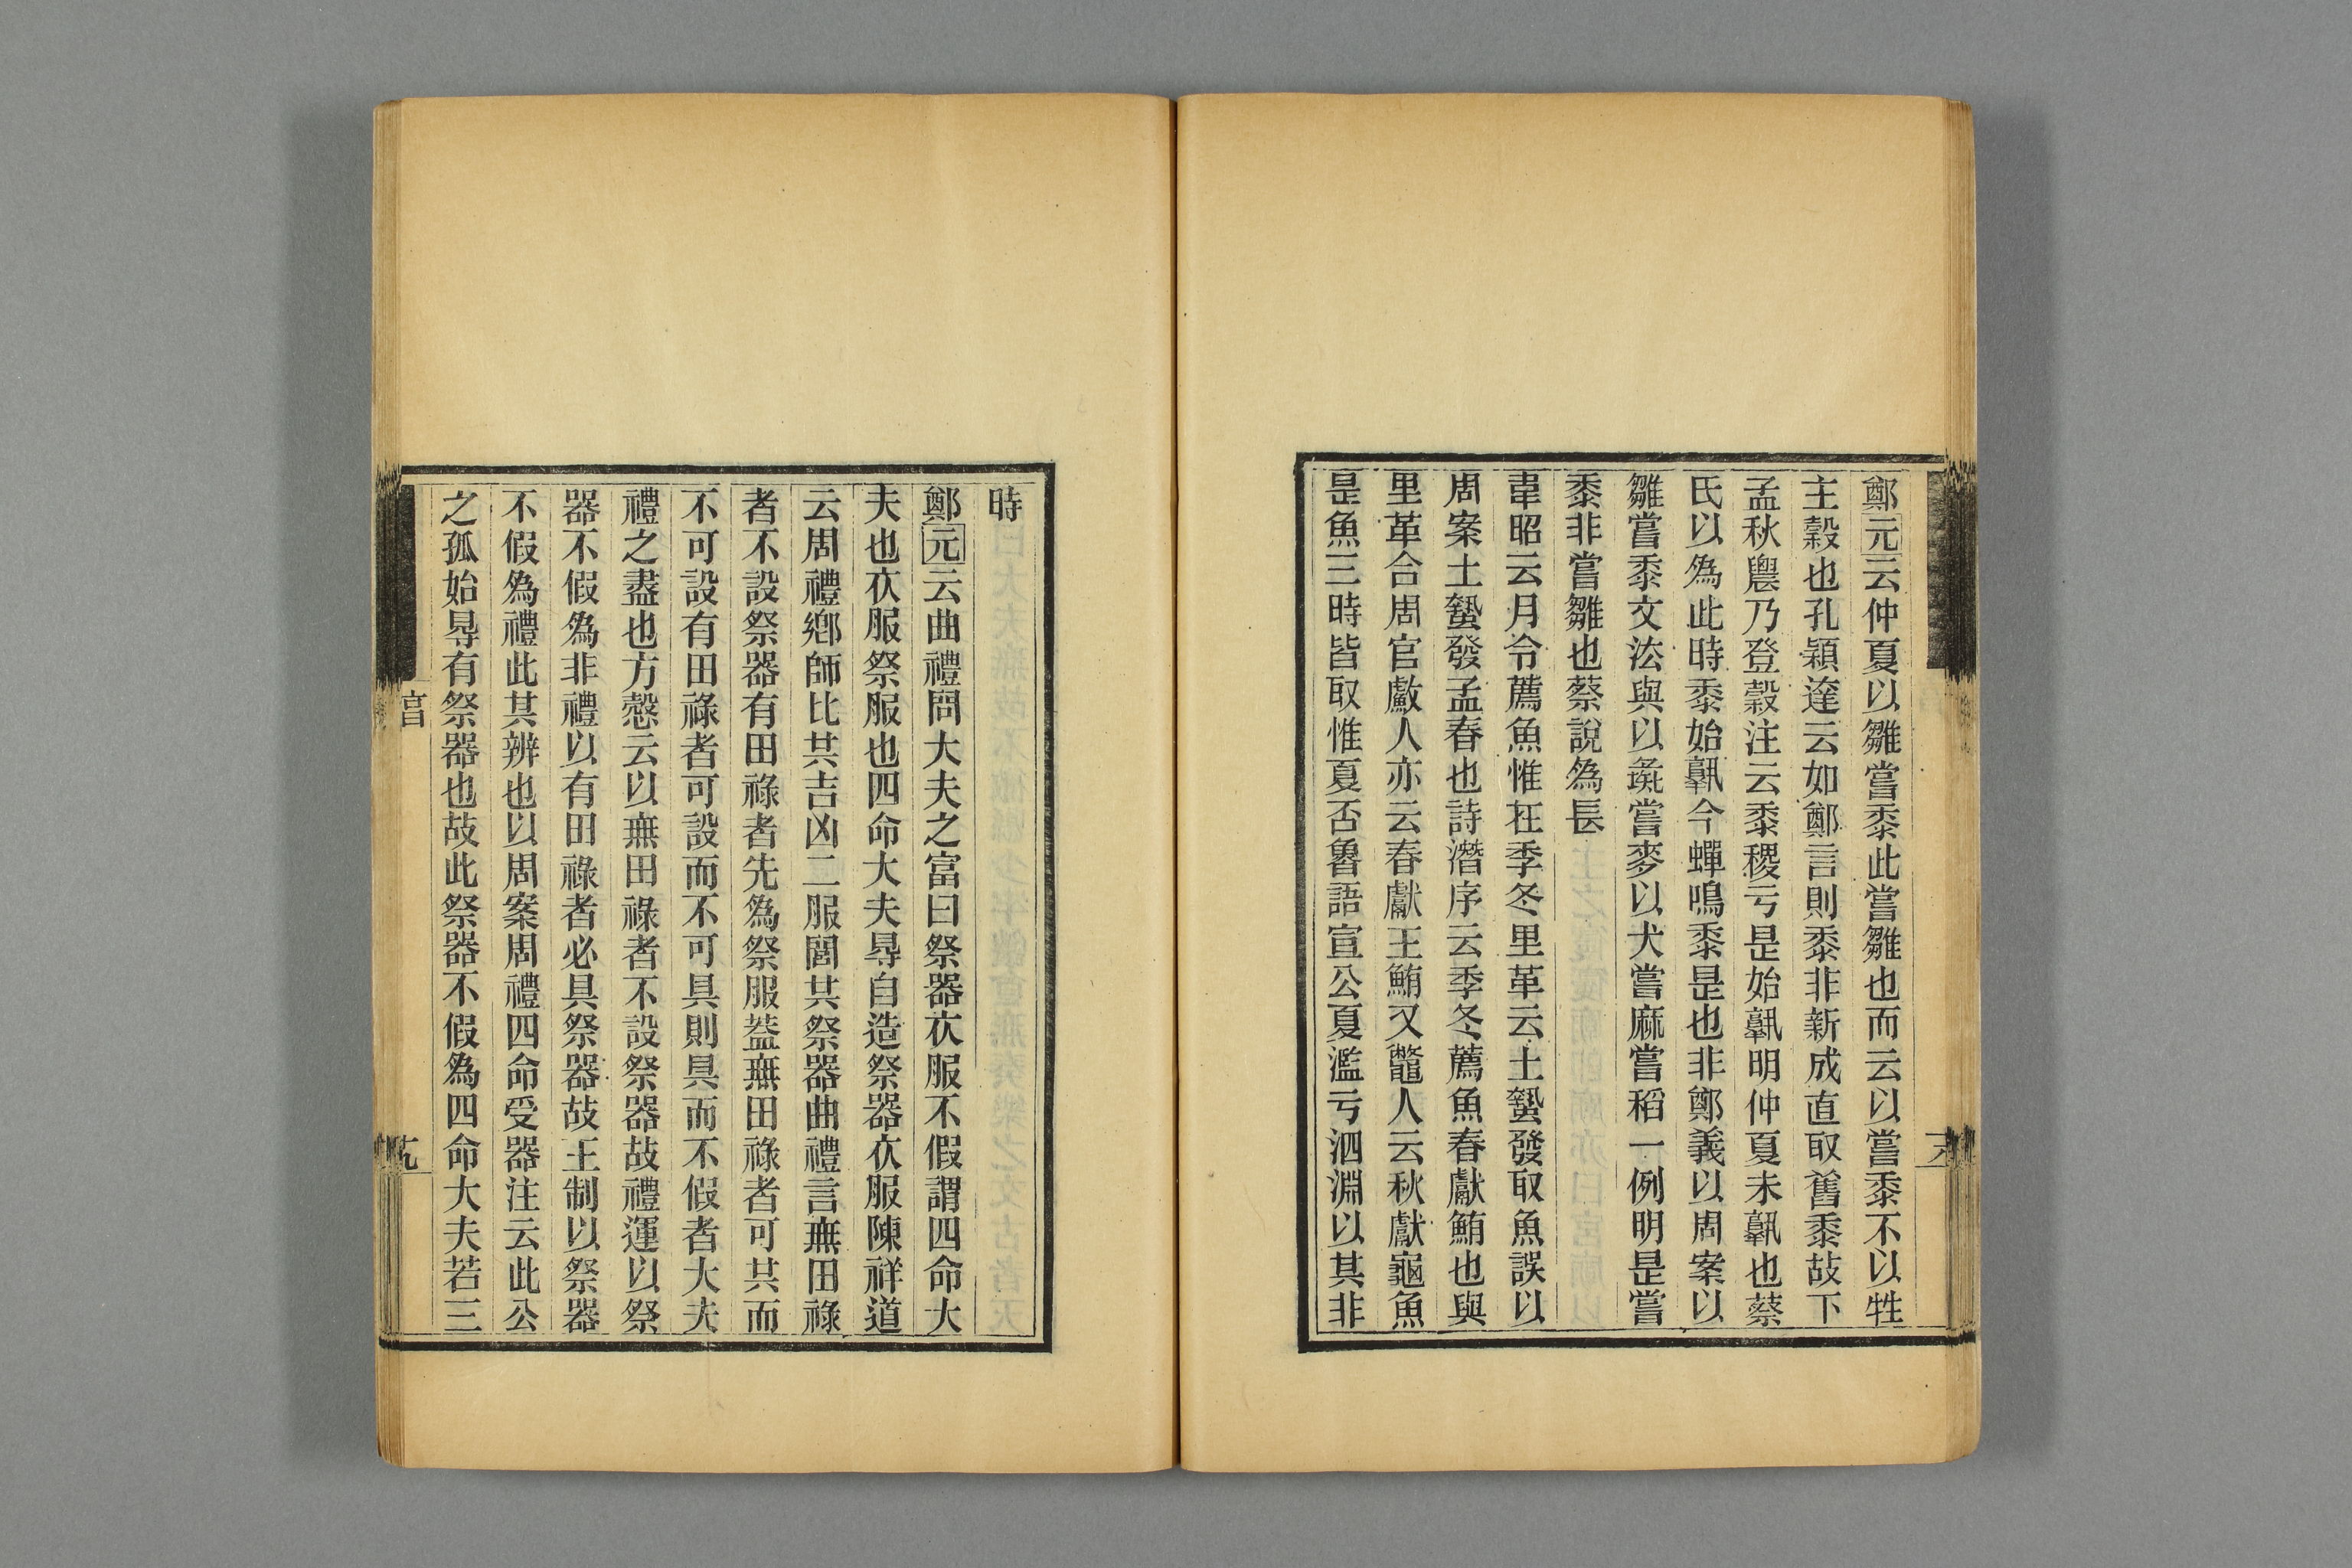 鄭元云仲夏以雛嘗黍此嘗雛也而云以嘗黍不以牲
主穀也孔穎達云如鄭言則黍非新成直取舊黍故下
孟秋農乃登穀注云黍稷亏是始孰明仲夏未孰也蔡
氏以為此時黍始孰今蟬鳴黍是也非鄭義以周案以
雛嘗黍文法與以彘嘗麥以犬嘗麻嘗稻一例明是嘗
黍非嘗雛也蔡說為長
韋昭云月令薦魚惟在季冬里革云土蟄發取魚誤以
周案土蟄發孟春也詩潛序云季冬薦魚春獻鮪也與
里革合周官䱷人亦云春獻王鮪又鼈人云秋獻龜魚
是魚三時皆取惟夏否魯語宣公夏濫亏泗淵以其非
時
鄭元云曲禮問大夫之富曰祭器衣服不假謂四命大
夫也衣服祭服也四命大夫㝵自造祭器衣服陳祥道
云周禮鄉師比共吉凶二服閭共祭器曲禮言無田祿
者不設祭器有田祿者先為祭服葢無田祿者可共而
不可設有田祿者可設而不可具則具而不假者大夫
禮之盡也方愨云以無田祿者不設祭器故禮運以祭
器不假為非禮以有田祿者必具祭器故王制以祭器
不假為禮此其辨也以周案周禮四命受器注云此公
之孤始㝵有祭器也故此祭器不假為四命大夫若三